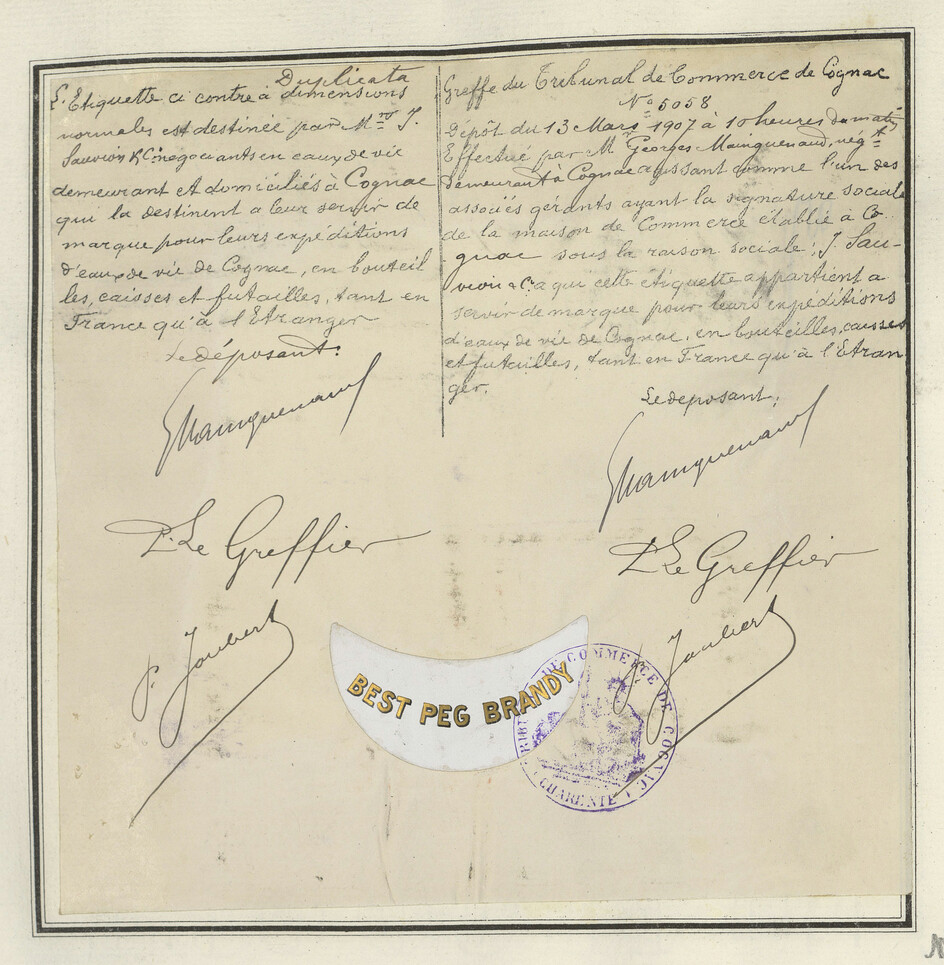 Duplicata
L'Etiquette ci contre à dimensions
normales est destinée par M.rs J.
Sauvion & Cie négociants en eaux de vie
demeurant et domiciliés à Cognac
qui la destinent a leur servir de
marque pour leurs expéditions
d'eaux de vie de Cognac, en bouteil
les, caisses et futailles, tant en
France qu'à l'Etranger
Le déposant:
GMainguenaud
P. Le Greffier
P. Joubert
Greffe du Tribunal de Commerce de Cognac
No 5058
Dépôt du 13 Mars 1907 à 10 heures du matin
Effectué par Mr Georges Mainguenaud, négt
demeurant à Cognac agissant comme l'un des
associés gérants ayant la signature sociale
de la maison de Commerce établie à Co-
gnac sous la raison sociale: J. Sau-
vion & Cie a qui cette étiquette appartient a
servir de marque pour leurs expéditions
d'eaux de vie de Cognac, en bouteilles, caisses
et futailles, tant en France qu'à l'Etran
ger.
Le deposant:
GMainguenaud
P. Le Greffier
P. Joubert
BEST PEG BRANDY
TRIBUNAL DE COMMERCE DE COGNAC
CHARENTE